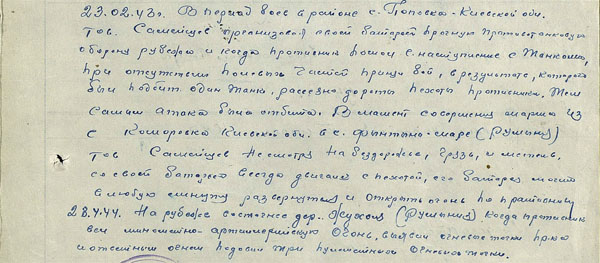 23.02.43г. В период боев в районе с. Поповка-Киевской обл.
тов. Самейцев организовал своей батареей прочную противотанковую
оборону рубежа и когда противник пошел в наступление с танками,
при отсутствии полевых частей принял бой, в результате, которого
был подбит один танк, рассеяно до роты пехоты противника. Тем
самым атака была отбита. В момент совершения марша из
с Комаровка Киевской обл. в с. Фынтына-маре (Румын)
тов Самейцев несмотря на бездорожье, грузь, и метель,
со своей батареей всегда двигался с пехотой, его батарея могла
в любую минуту развернуться и открыть огонь по противнику
28.4.44. На рубеже восточнее дер. (Румыния) когда противник
вел минометно-артиллерийскую огонь, выявил огневые точки пр-ка
и ответным огнем подавил три пулеметных огневых точки.